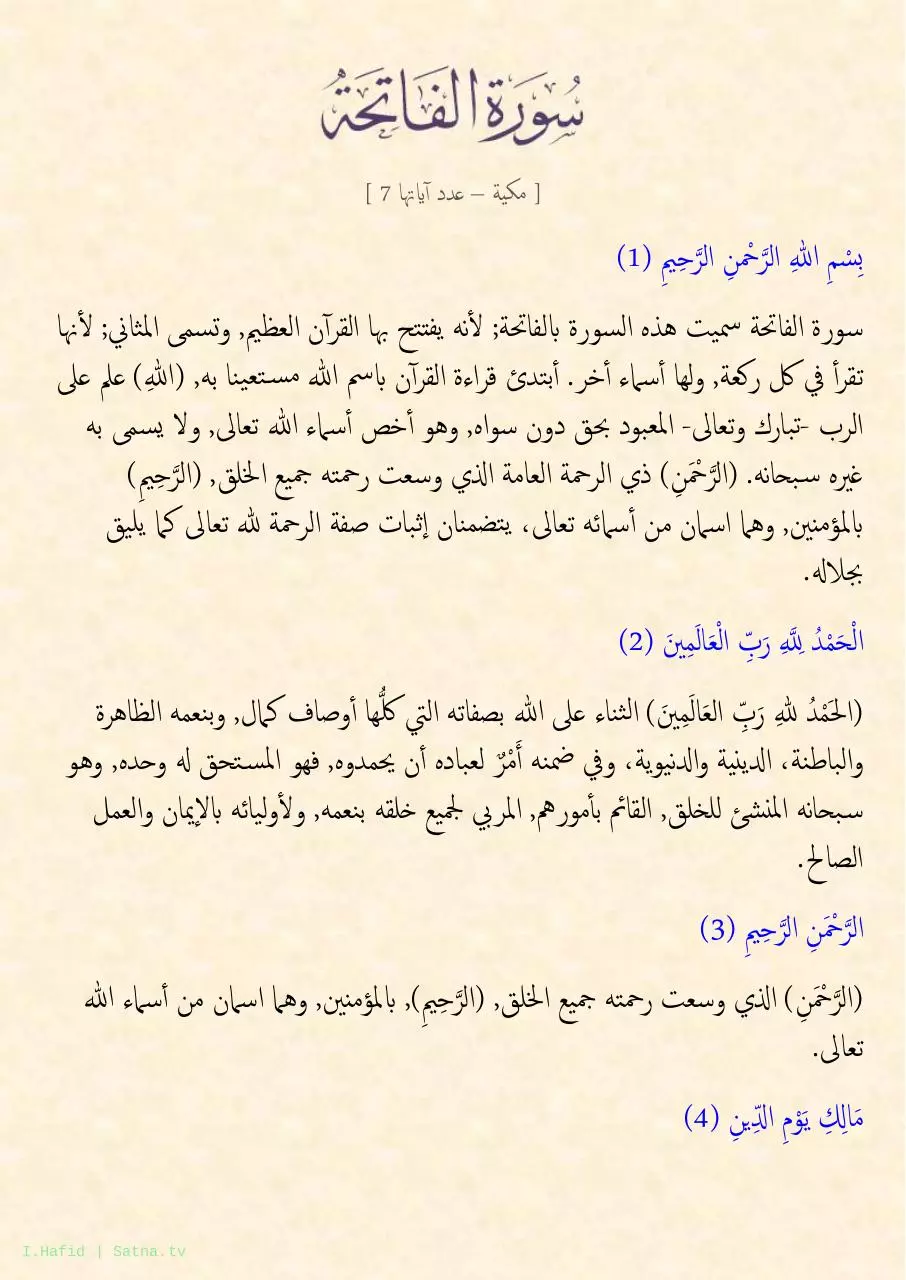 سُورَةُ الفَاتِحَةِ
[ مكية – عدد آياتها 7 ]
بِسْمِ اللهِ الرَّحْمنِ الرَّحِيمِ (1)
سورة الفاتحة سميت هذه السورة بالفاتحة; لأنه يفتتح بها القرآن العظيم, وتسمى المثاني; لأنها
تقرأ في كل ركعة, ولها أسماء أخر. أبتدئ قراءة القرآن باسم الله مستعينا به, (اللهِ) علم على
الرب -تبارك وتعالى- المعبود بحق دون سواه, وهو أخص أسماء الله تعالى, ولا يسمى به
غيره سبحانه. (الرَّحْمَنِ) ذي الرحمة العامة الذي وسعت رحمته جميع الخلق, (الرَّحِيمِ)
بالمؤمنين, وهما اسمان من أسمائه تعالى، يتضمنان إثبات صفة الرحمة لله تعالى كما يليق
بجلاله.
الْحَمْدُ لِلَّهِ رَبِّ الْعَالَمِينَ (2)
(الحَمْدُ للهِ رَبِّ العَالَمِينَ) الثناء على الله بصفاته التي كلُّها أوصاف كمال, وبنعمه الظاهرة
والباطنة، الدينية والدنيوية، وفي ضمنه أَمْرٌ لعباده أن يحمدوه, فهو المستحق له وحده, وهو
سبحانه المنشئ للخلق, القائم بأمورهم, المربي لجميع خلقه بنعمه, ولأوليائه بالإيمان والعمل
الصالح.
الرَّحْمَنِ الرَّحِيمِ (3)
(الرَّحْمَنِ) الذي وسعت رحمته جميع الخلق, (الرَّحِيمِ), بالمؤمنين, وهما اسمان من أسماء الله
تعالى.
مَالِكِ يَوْمِ الدِّينِ (4)
I.Hafid | Satna.tv